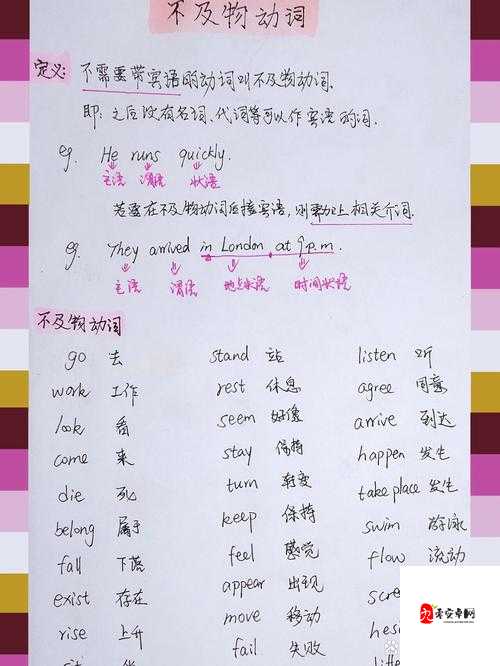 不及物动词
定义: 不需要带宾语的动词叫不及物动词.
即: 之后没有名词、代词等可以作宾语的词.
eg. He runs quickly.
主语 谓语 状语
若要在不及物动词后接宾语, 则要加上相关介词.
eg. They arrived in London at 9 p.m.
主语 谓语 地点状语 时间状语
不及物动词
go 去 stand 站 listen 听
work 工作 rest 休息 agree 同意
look 看 seem 好像 arrive 到达
come 来 stay 保持 happen 发生
die 死 turn 转变 take place 发生
belong 属于 keep 保持 swim 游泳
fall 下落 feel 感觉 flow 流动
exist 存在 appear 出现
rise 上升 move 移动
fail 失败
零安卓网